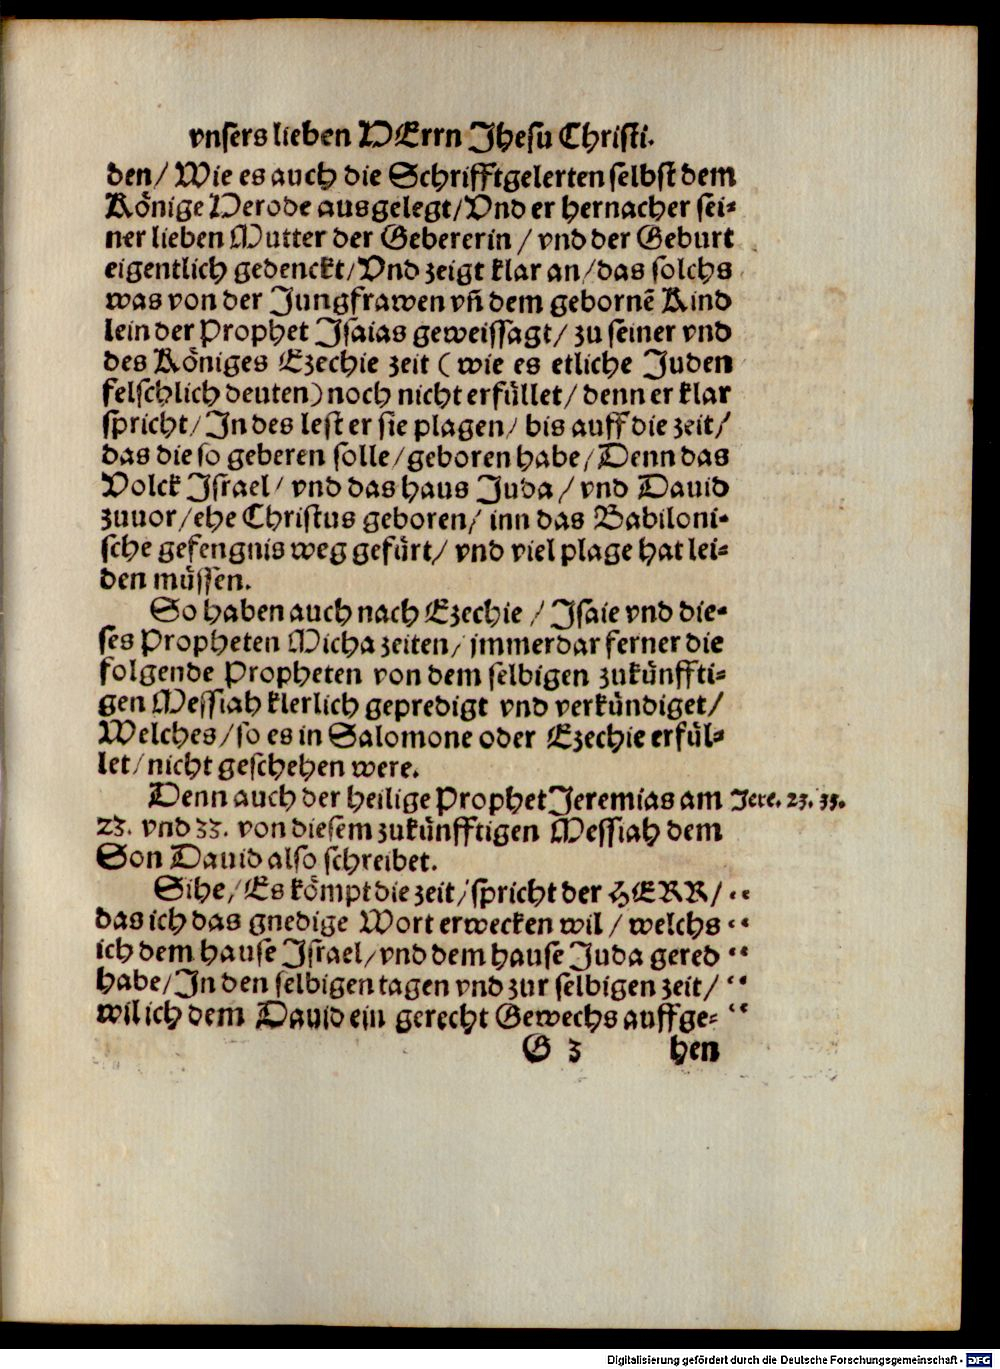 vnsers lieben HErrn Jhesu Christi.
den/ Wie es auch die Schrifftgelerten selbst dem
Könige Herode ausgelegt/ Vnd er hernacher sei-
ner lieben Mutter der Gebererin / vnd der Geburt
eigentlich gedenckt/ Vnd zeigt klar an/ das solchs
was von der Jungfrawen vñ dem gebornẽ Kind
lein der Prophet Jsaias geweissagt/ zu seiner vnd
des Königes Ezechie zeit ( wie es etliche Juden
felschlich deuten) noch nicht erfüllet/ denn er klar
spricht/ Jn des lest er sie plagen/ bis auff die zeit/
das die so geberen solle/ geboren habe/ Denn das
Volck Jsrael/ vnd das haus Juda/ vnd Dauid
zuuor/ ehe Christus geboren/ inn das Babiloni-
sche gefengnis weg gefürt/ vnd viel plage hat lei-
den müssen.
So haben auch nach Ezechie / Jsaie vnd die-
ses Propheten Micha zeiten/ jmmerdar ferner die
folgende Propheten von dem selbigen zukünffti-
gen Messiah klerlich gepredigt vnd verkündiget/
Welches/ so es in Salomone oder Ezechie erfül-
let/ nicht geschehen were.
Denn auch der heilige Prophet Jeremias am Jere. 23. 33.
23. vnd 33. von diesem zukünfftigen Messiah dem
Son Dauid also schreibet.
Sihe/ Es kömpt die zeit/ spricht der HERR/ “
das ich das gnedige Wort erwecken wil / welchs “
ich dem hause Jsrael/ vnd dem hause Juda gered “
habe/ Jn den selbigen tagen vnd zur selbigen zeit/ “
wil ich dem Dauid ein gerecht Gewechs auffge- “
G 3 hen
Digitalisierung gefördert durch die Deutsche Forschungsgemeinschaft - DFG